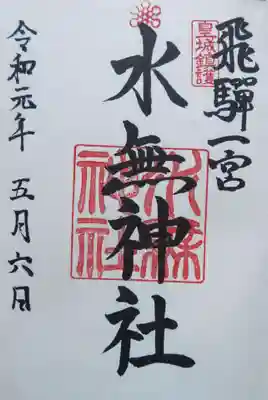 飛騨一宮
皇城鎮護
水無神社
水無神社
令和元年 五月六日